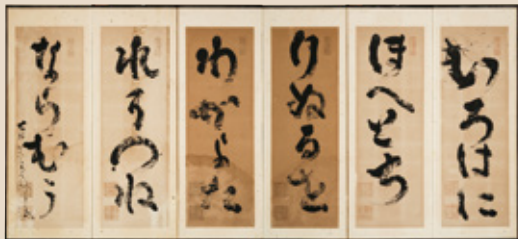 いろはに
ほへとち
りぬるを
わがよた
れそつね
ならむう